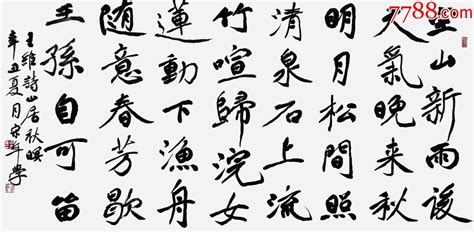 空山新雨後
天氣晚来秋
明月松間照
清泉石上流
竹喧歸浣女
蓮動下漁舟
随意春芳歇
王孫自可留
王維詩山居秋暝
辛丑夏月宋年學
7788.com